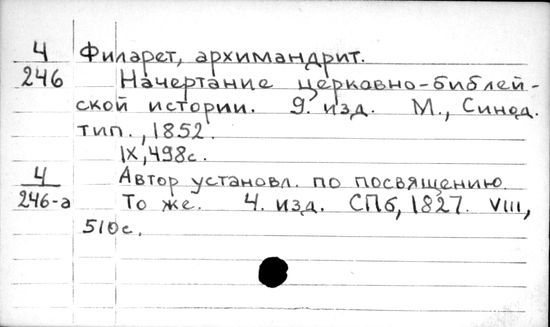 4 Филарет, архимандрит.
246 Начертание церковно-библей-
ской истории. 9. изд. М., Синод.
тип., 1852.
IX, 498с.
4 Автор установл. по посвящению.
246-а То же. 4. изд. СПб, 1827. VIII,
510с.